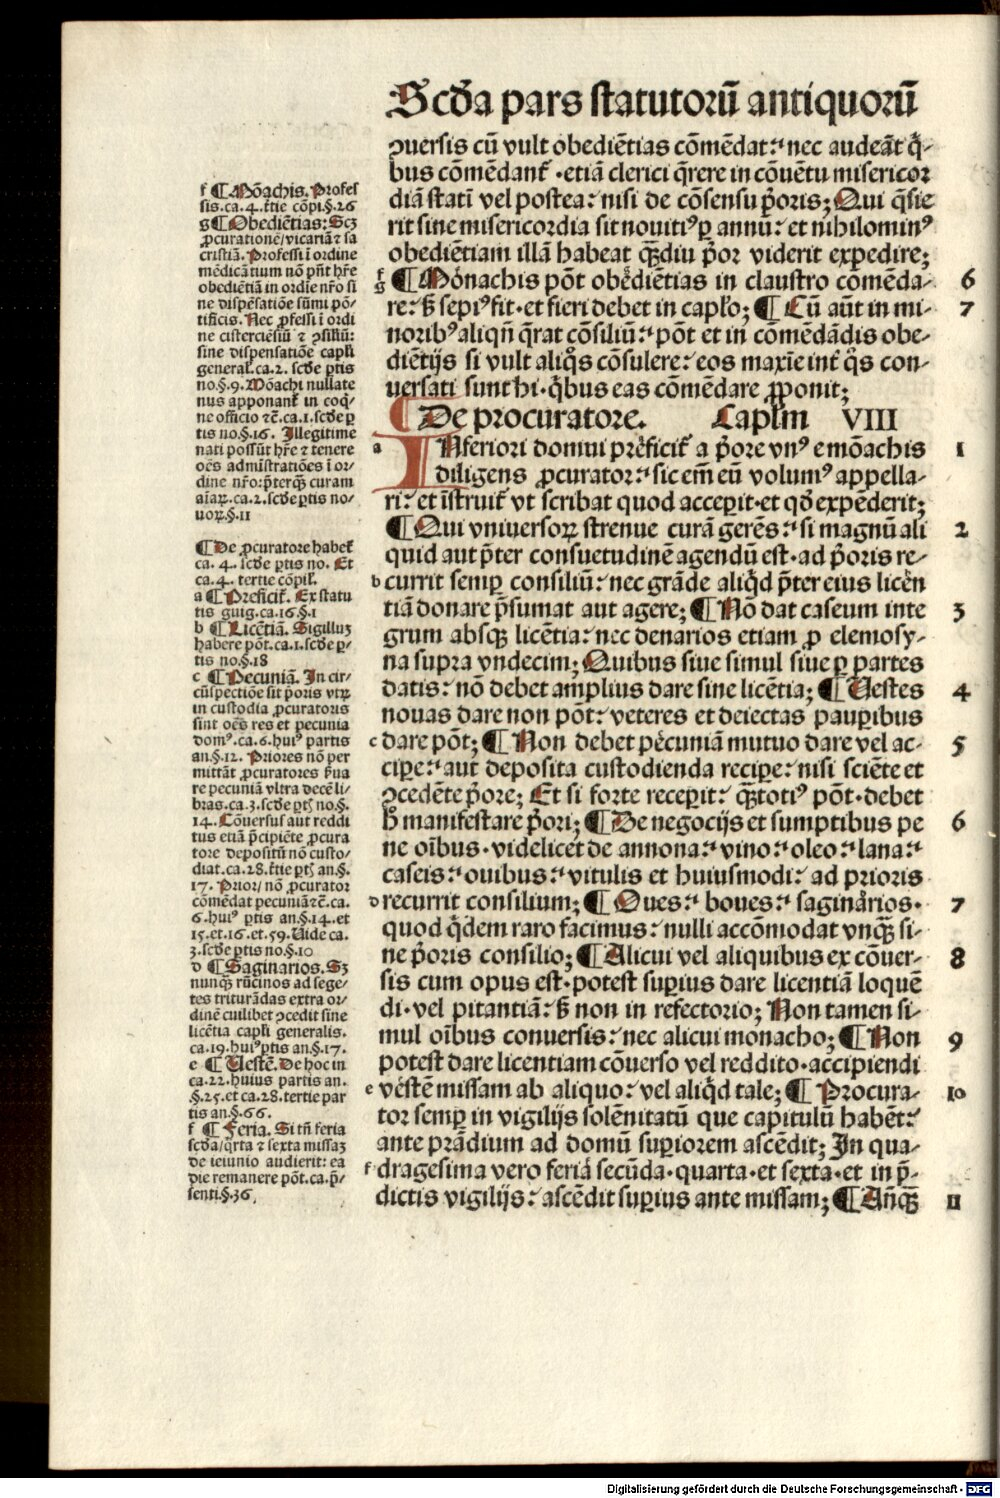 Scďa pars statutorū antiquorū
ꝯuersis cū vult obediētias cōmēdat: nec audeāt q̄-
bus cōmēdant᷑ ·etiā clerici q̄rere in cōuētu misericor
diā statī vel postea: nisi de cōsensu p̄oris; Qui q̄sie
rit sine misericordia sit nouitiꝰ ꝑ annū: et nihilominꝰ
obediētiam illā habeat qͣꝫdiu p̄or viderit expedire;
f g ¶ Mōnachis pōt obēdiētias in claustro cōmēda- 6
re: sꝫ sepiꝰ fit·et fieri debet in cap̄lo; ¶ Cū aūt in mi- 7
noribꝰ aliqn̄ q̄rat cōsiliū: pōt et in cōmēdādis obe-
diētijs si vult aliq̊s cōsulere: eos maxīe int᷑ q̊s con-
uersati sunt hi·q̄bus eas cōmēdare ꝓponit;
¶ De procuratore. Caplm̄ VIII
a INferiori domui prēficit᷑ a p̄ore vnꝰ e mōachis 1
diligens ꝓcurator: sic em̄ eū volumꝰ appella-
ri: et īstruit᷑ vt scribat quod acceꝑit·et qď expēderit;
¶ Qui vniuersoꝝ strenue curā gerēs: si magnū ali 2
quid aut p̄ter consuetudinē agendū est·ad p̄oris re-
b currit semꝑ consiliū: nec grāde aliq̇d p̄ter eius licēn
tiā donare p̄sumat aut agere; ¶ Nō dat caseum inte 3
grum absqꝫ licētia: nec denarios etiam ꝓ elemosy-
na supra vndecim; Quibus siue simul siue ꝑ partes
datis: nō debet amplius dare sine licētia; ¶ Uestes 4
nouas dare non pōt: veteres et deiectas pauꝑibus
c dare pōt; ¶ Non debet pēcuniā mutuo dare vel ac- 5
ciꝑe: aut deposita custodienda reciꝑe: nisi sciēte et
ꝯcedēte p̄ore; Et si forte receꝑit: qͣꝫtotiꝰ pōt·debet
h̄ manifestare p̄ori; ¶ De negocijs et sumptibus pe 6
ne oībus·videlicet de annona: vino: oleo: lana:
caseis: ouibus: vitulis et huiusmodi: ad prioris
d recurrit consilium; ¶ Oues: boues: saginārios· 7
quod q̇dem raro facimus: nulli accōmodat vnqͣꝫ si-
ne p̄oris consilio; ¶ Alicui vel aliquibus ex cōuer- 8
sis cum opus est·potest suꝑius dare licentiā loquē
di·vel pitantiā: sꝫ non in refectorio; Non tamen si-
mul oībus conuersis: nec alicui monacho; ¶ Non 9
potest dare licentiam cōuerso vel reddito·accipiendi
e vēstē missam ab aliquo: vel aliq̇d tale; ¶ Procura- 10
tor semꝑ in vigilijs solēnitatū que capitulū habēt:
ante prādium ad domū suꝑiorem ascēdit; In qua-
f dragesima vero feriā secūda·quarta·et sexta·et in p̄-
dictis vigilijs: ascēdit suꝑius ante missam; ¶ Añqͣꝫ 11
f ¶ Mōachis. Profes
sis.ca.4.t̄tie cōpi.§.26
g ¶ Obediētias: Scꝫ
ꝓcurationē/vicariā ⁊ sa
cristiā. Professi ī ordine
mēdicātium nō pn̄t hr̄e
obediētiā in ordīe nr̄o si
ne dispēsatiōe sūmi pō-
tificis. Nec ꝓfessi ī ordi
ne cisterciēsiū ⁊ ꝯsiliū:
sine dispensatiōe capl̄i
general᷑.ca.2. scďe ꝑtis
no.§.9. Mōachi nullate
nus apponant᷑ in coq̄-
ne officio ⁊c̄.ca.1.scďe ꝑ
tis no.§.16. Illegitime
nati possūt hr̄e ⁊ tenere
oēs admīstratiōes ī or-
dine nr̄o: p̄terqͣꝫ curam
aīaꝝ.ca.2.scďe ꝑtis no-
uoꝝ.§.11
¶ De ꝓcuratore habet᷑
ca. 4. scďe ꝑtis no. Et
ca.4. tertie cōpil᷑.
a ¶ Preficit᷑. Ex statu
tis guig.ca.16.§.1
b ¶ Licētiā. Sigilluꝫ
habere pōt.ca.1.scďe ꝑ-
tis no.§.18
c ¶ Pecuniā. In cir-
cūspectiōe sit p̄oris vtꝝ
in custodia ꝓcuratoris
sint oēs res et pecunia
domꝰ.ca.6.huiꝰ partis
an.§.12. Priores nō per
mittāt ꝓcuratores p̄ua
re pecuniā vltra decē li-
bras.ca.3.scďe ꝑtꝭ no.§.
14. Cōuersus aut reddi
tus etiā p̄cipiēte ꝓcura
tore depositū nō custo-
diat.ca.28.t̄tie ꝑtꝭ an.§.
17. Prior/ nō ꝓcurator
cōmēdat pecuniā⁊c̄.ca.
6.huiꝰ ꝑtis an.§.14.et
15.et.16.et.59. Uide ca.
3.scďe ꝑtis no.§.10
d ¶ Saginarios. Sꝫ
nunqͣꝫ rūcinos ad sege-
tes triturādas extra or-
dinē cuilibet ꝯcedit sine
licētia capl̄i generalis.
ca.19.huiꝰ ꝑtis an.§.17.
e ¶ Uestē. De hoc in
ca.22.huius partis an.
§.25.et ca.28.tertie par
tis an.§.66.
f ¶ Feria. Si tn̄ feria
scďa/q̄rta ⁊ sexta missaꝫ
de ieiunio audierit: ea
die remanere pōt.ca.p̄-
senti.§.36.
Digitalisierung gefördert durch die Deutsche Forschungsgemeinschaft - DFG